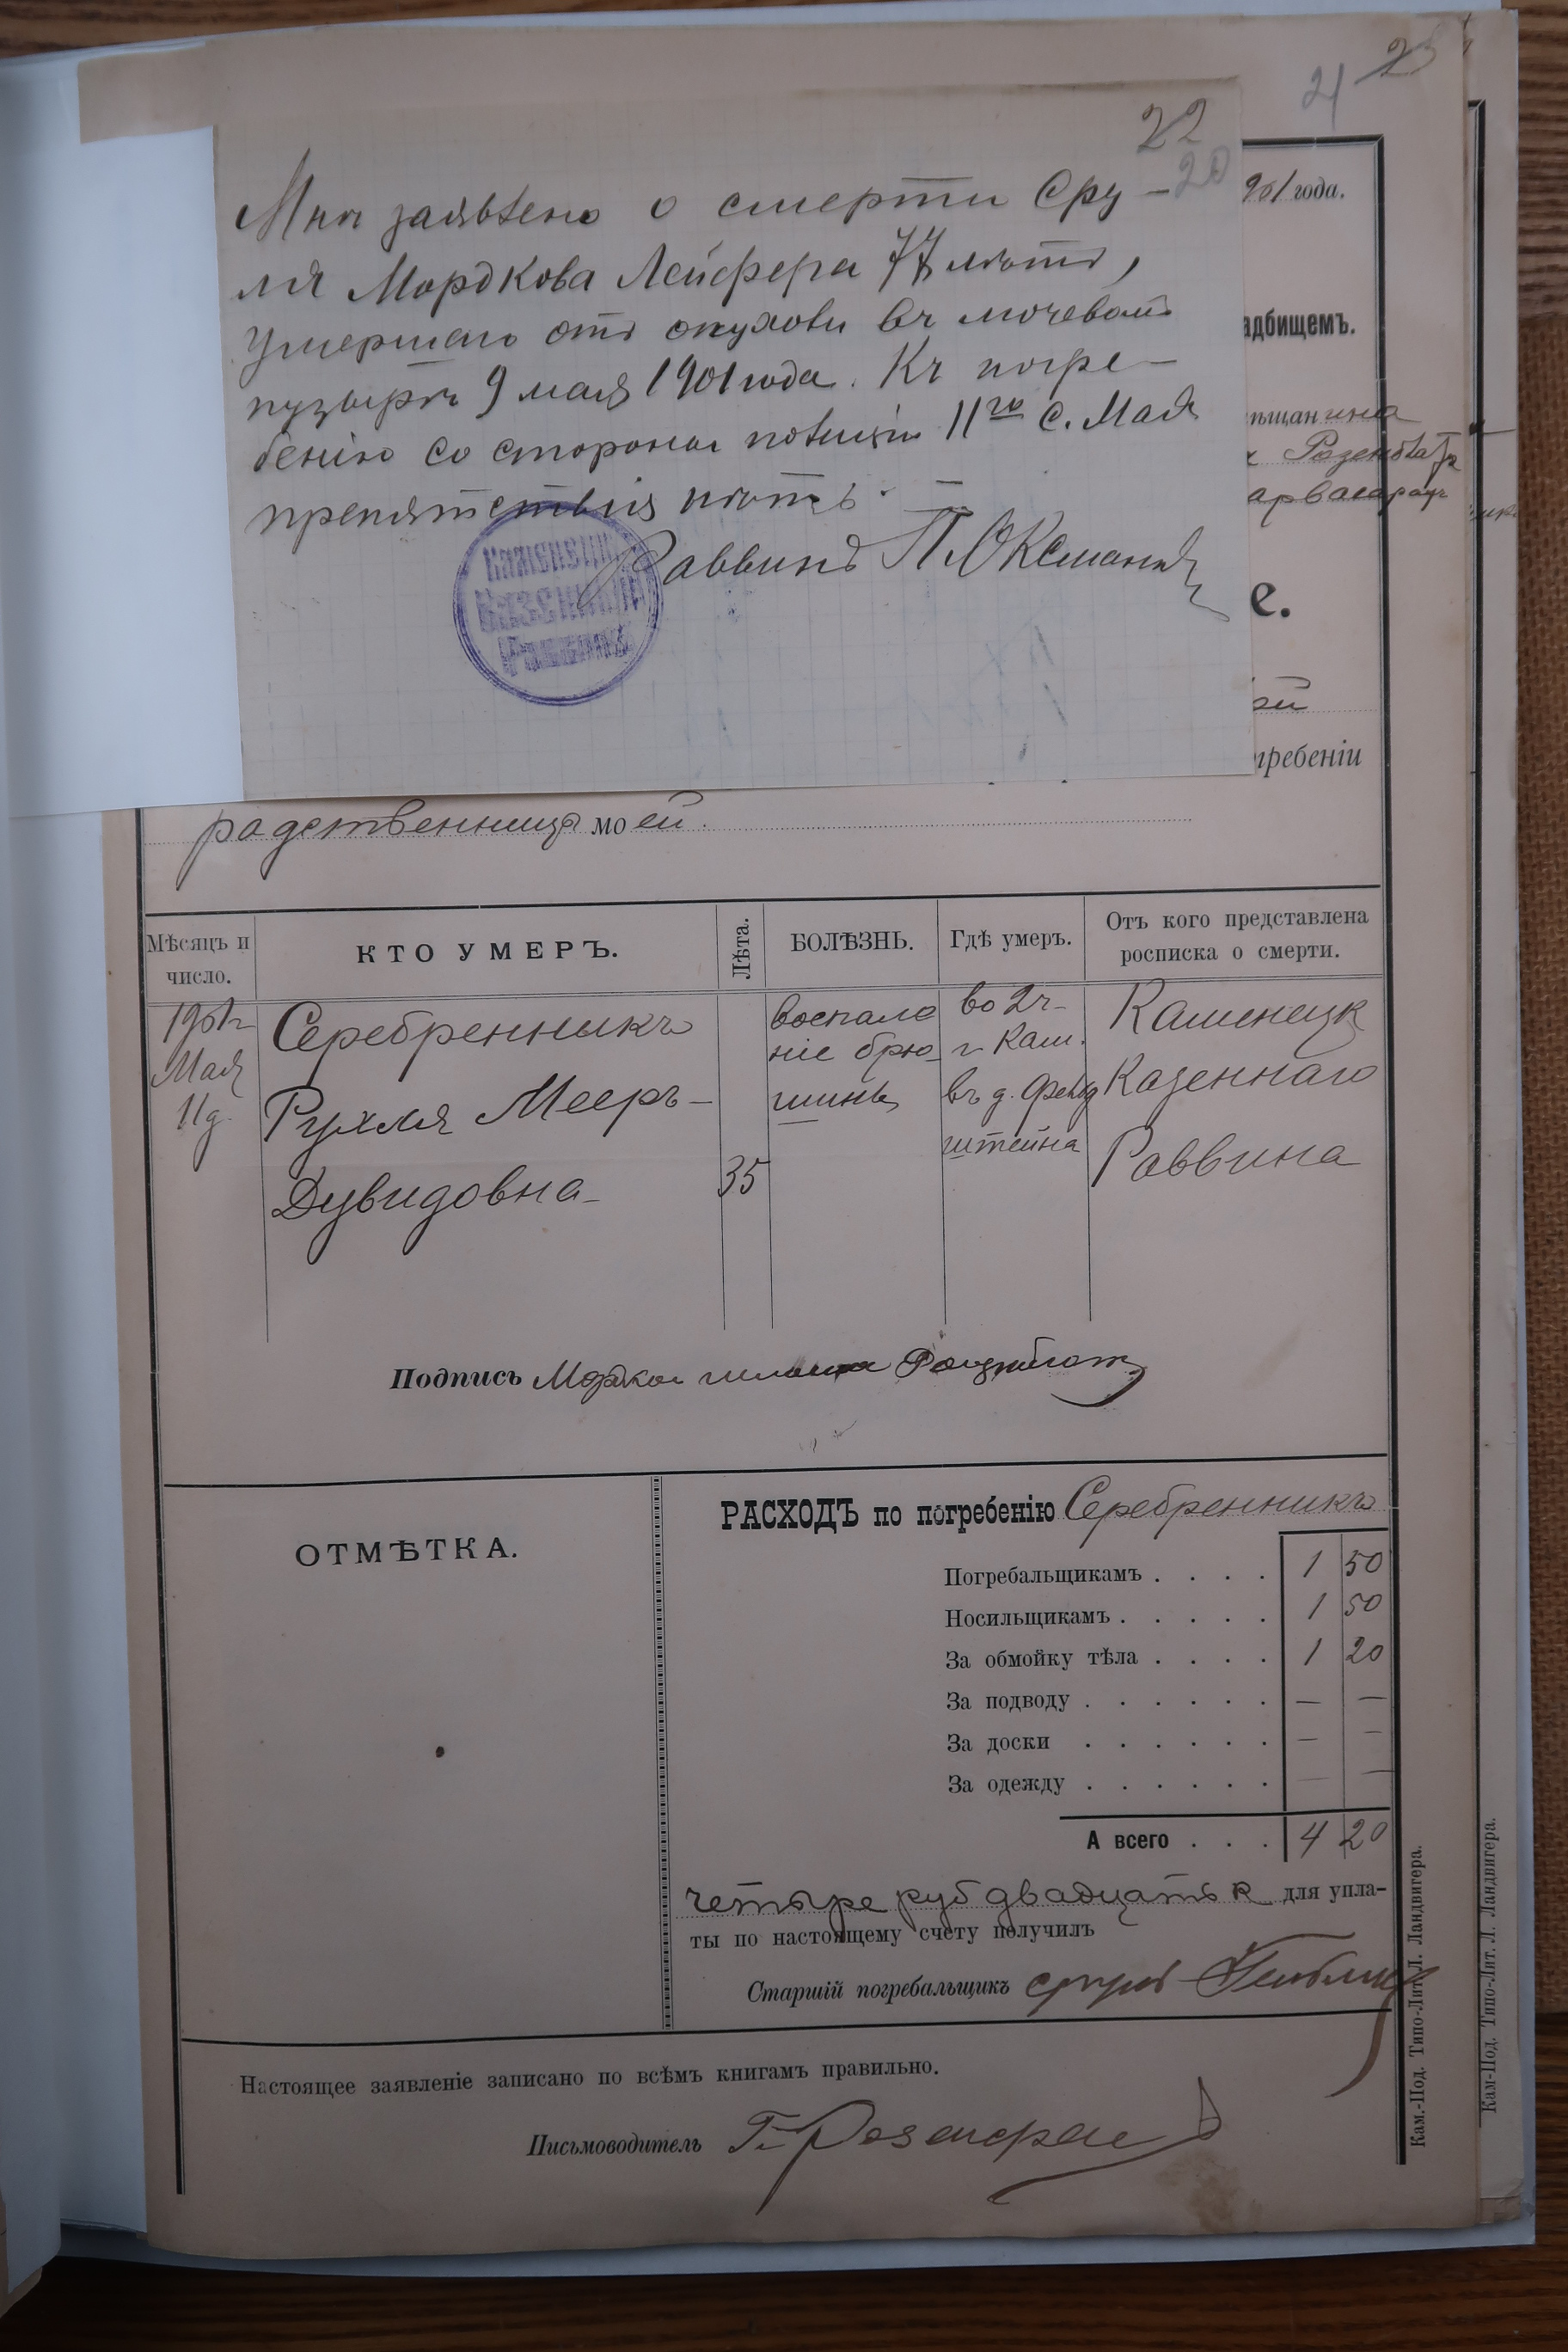 23
21
22
20
Мнѣ заявлено о смерти Сру-
ля Мордкова Лейфера 77 лѣтъ,
умершаго отъ опухоли въ мочевомъ
пузырѣ 9 мая 1901 года. Къ погре-
бенію со стороны полиціи 11го с. Мая
препятствія нѣтъ.
Раввинъ П. Оксманъ
Каменецкій
Казенный
Раввинъ
901 года.
адбищемъ.
ѣщанина
е.
ей
гребеніи
радственница моей.
Мѣсяцъ и число.
КТО УМЕРЪ.
Лѣта.
БОЛѢЗНЬ.
Гдѣ умеръ.
Отъ кого представлена росписка о смерти.
1901 г
Мая
11 д.
Серебренникъ
Рухля Мееръ-
Дувидовна-
35
воспале
ніе брю-
шины
во 2 ч-
г Кам.
въ д. Фельд
штейна
Каменецк
Казеннаго
Раввина
Подпись Мордко
ОТМѢТКА.
РАСХОДЪ по погребенію Серебренникъ
Погребальщикамъ . . . . 1 50
Носильщикамъ . . . . . 1 50
За обмойку тѣла . . . . 1 20
За подводу . . . . . . — —
За доски . . . . . . — —
За одежду . . . . . . — —
А всего . . . 4 20
четыре руб двадцать к для упла-
ты по настоящему счету получилъ
Старшій погребальщикъ
Настоящее заявленіе записано по всѣмъ книгамъ правильно.
Письмоводитель
Кам.-Под. Типо-Лит. Л. Ландвигера.
Кам-Под. Типо-Лит. Л. Ландвигера.